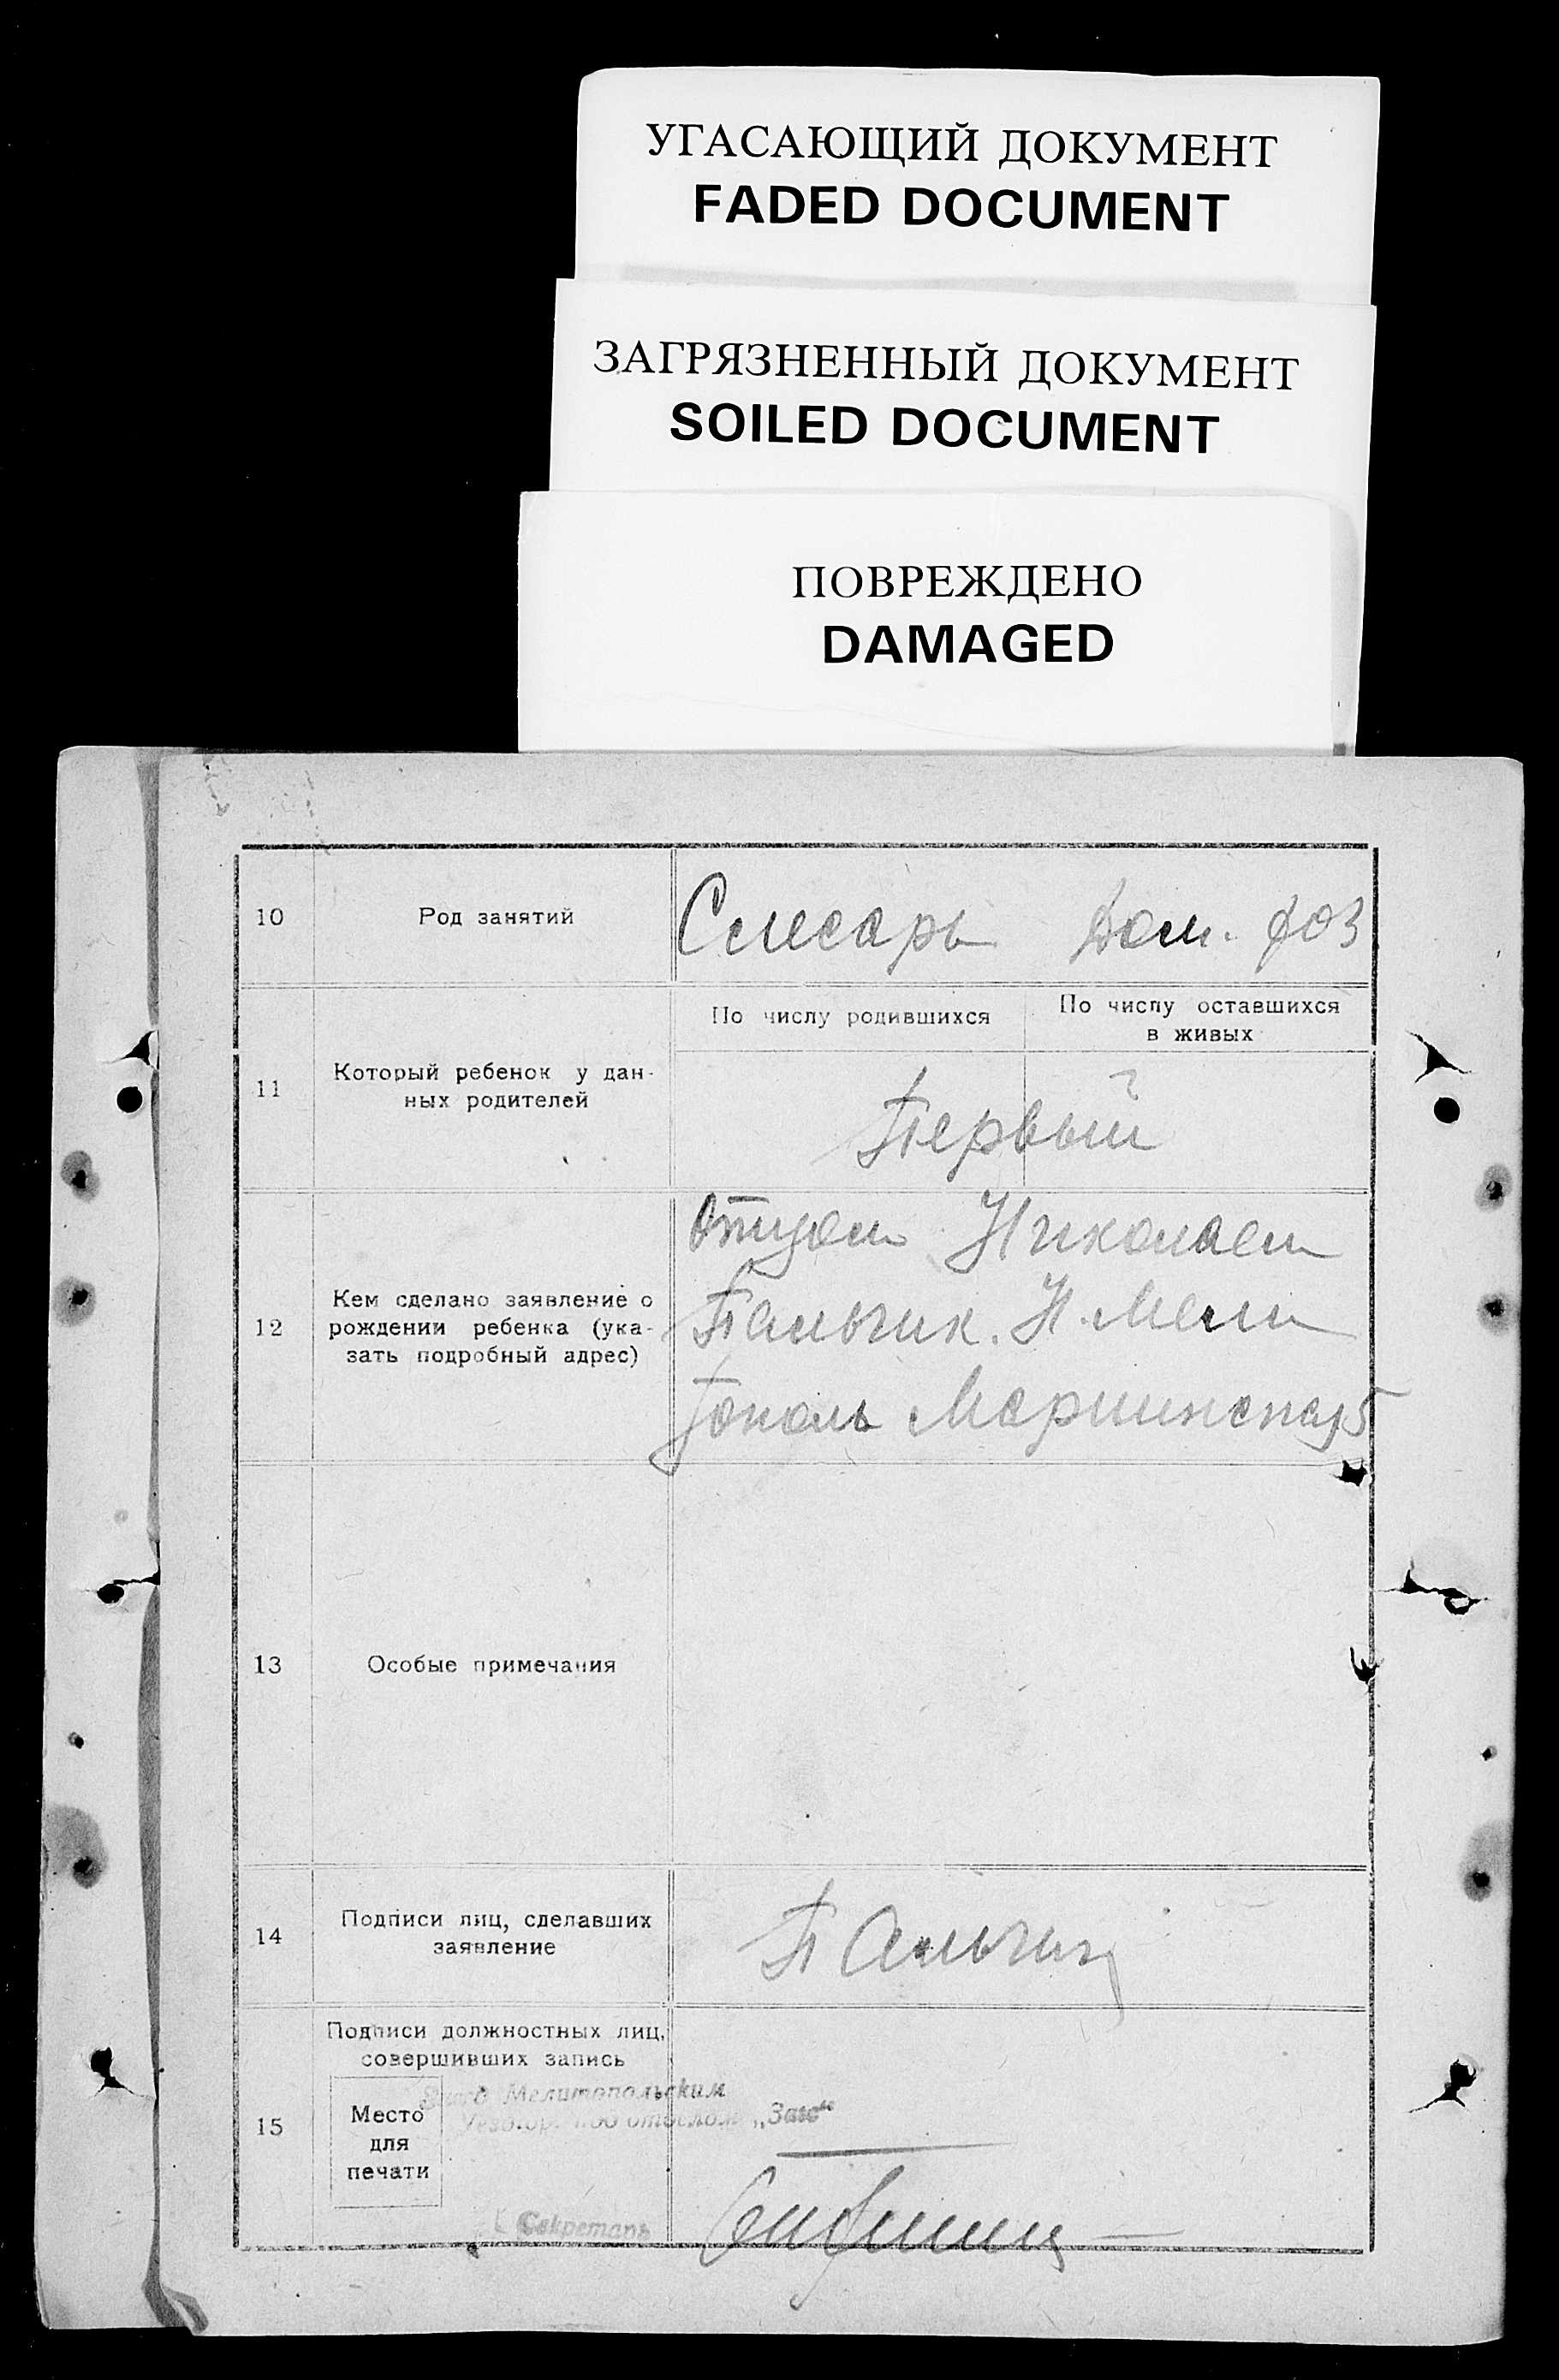 УГАСАЮЩИЙ ДОКУМЕНТ
FADED DOCUMENT
ЗАГРЯЗНЕННЫЙ ДОКУМЕНТ
SOILED DOCUMENT
ПОВРЕЖДЕНО
DAMAGED
10 Род занятий Слесарь Дом. хоз
По числу родившихся
По числу оставшихся
в живых
11 Который ребенок у дан-
ных родителей
Первый
12 Кем сделано заявление о
рождении ребенка (ука-
зать подробный адрес)
Отцом Николаем
Пальчик. Н. Мели
тополь Мариинская 5
13 Особые примечания
14 Подписи лиц, сделавших
заявление
Пальчик
15 Подписи должностных лиц,
совершивших запись
Место
для
печати
Мелитопольским
отделом „Загс“
Секретарь